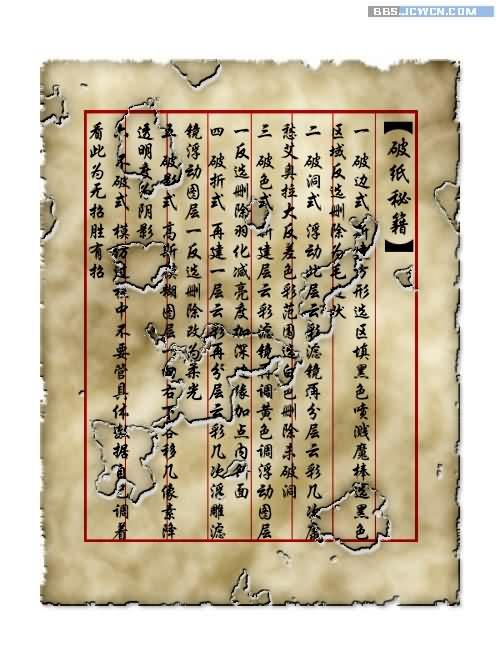 BBS.JCWCN.COM
【破纸秘籍】
一 破边式 新建方形选区填黑色喷溅魔棒选黑色
区域反选删除为毛边状
二 破洞式 浮动此层云彩滤镜再分层云彩几次魔
愁艾奥拉大反差色彩范围选白色删除杀破洞
三 破色式 新建层云彩滤镜再调黄色调浮动图层
一反选删除羽化减亮度加深图像加点内斜面
四 破折式 再建一层云彩再分层云彩几次浮雕滤
镜浮动图层一反选删除改为柔光
五 破影式 高斯模糊图层一向右下各移几像素降
透明度为阴影
六 不破式 模仿过程中不要管具体数据自己调着
看此为无招胜有招